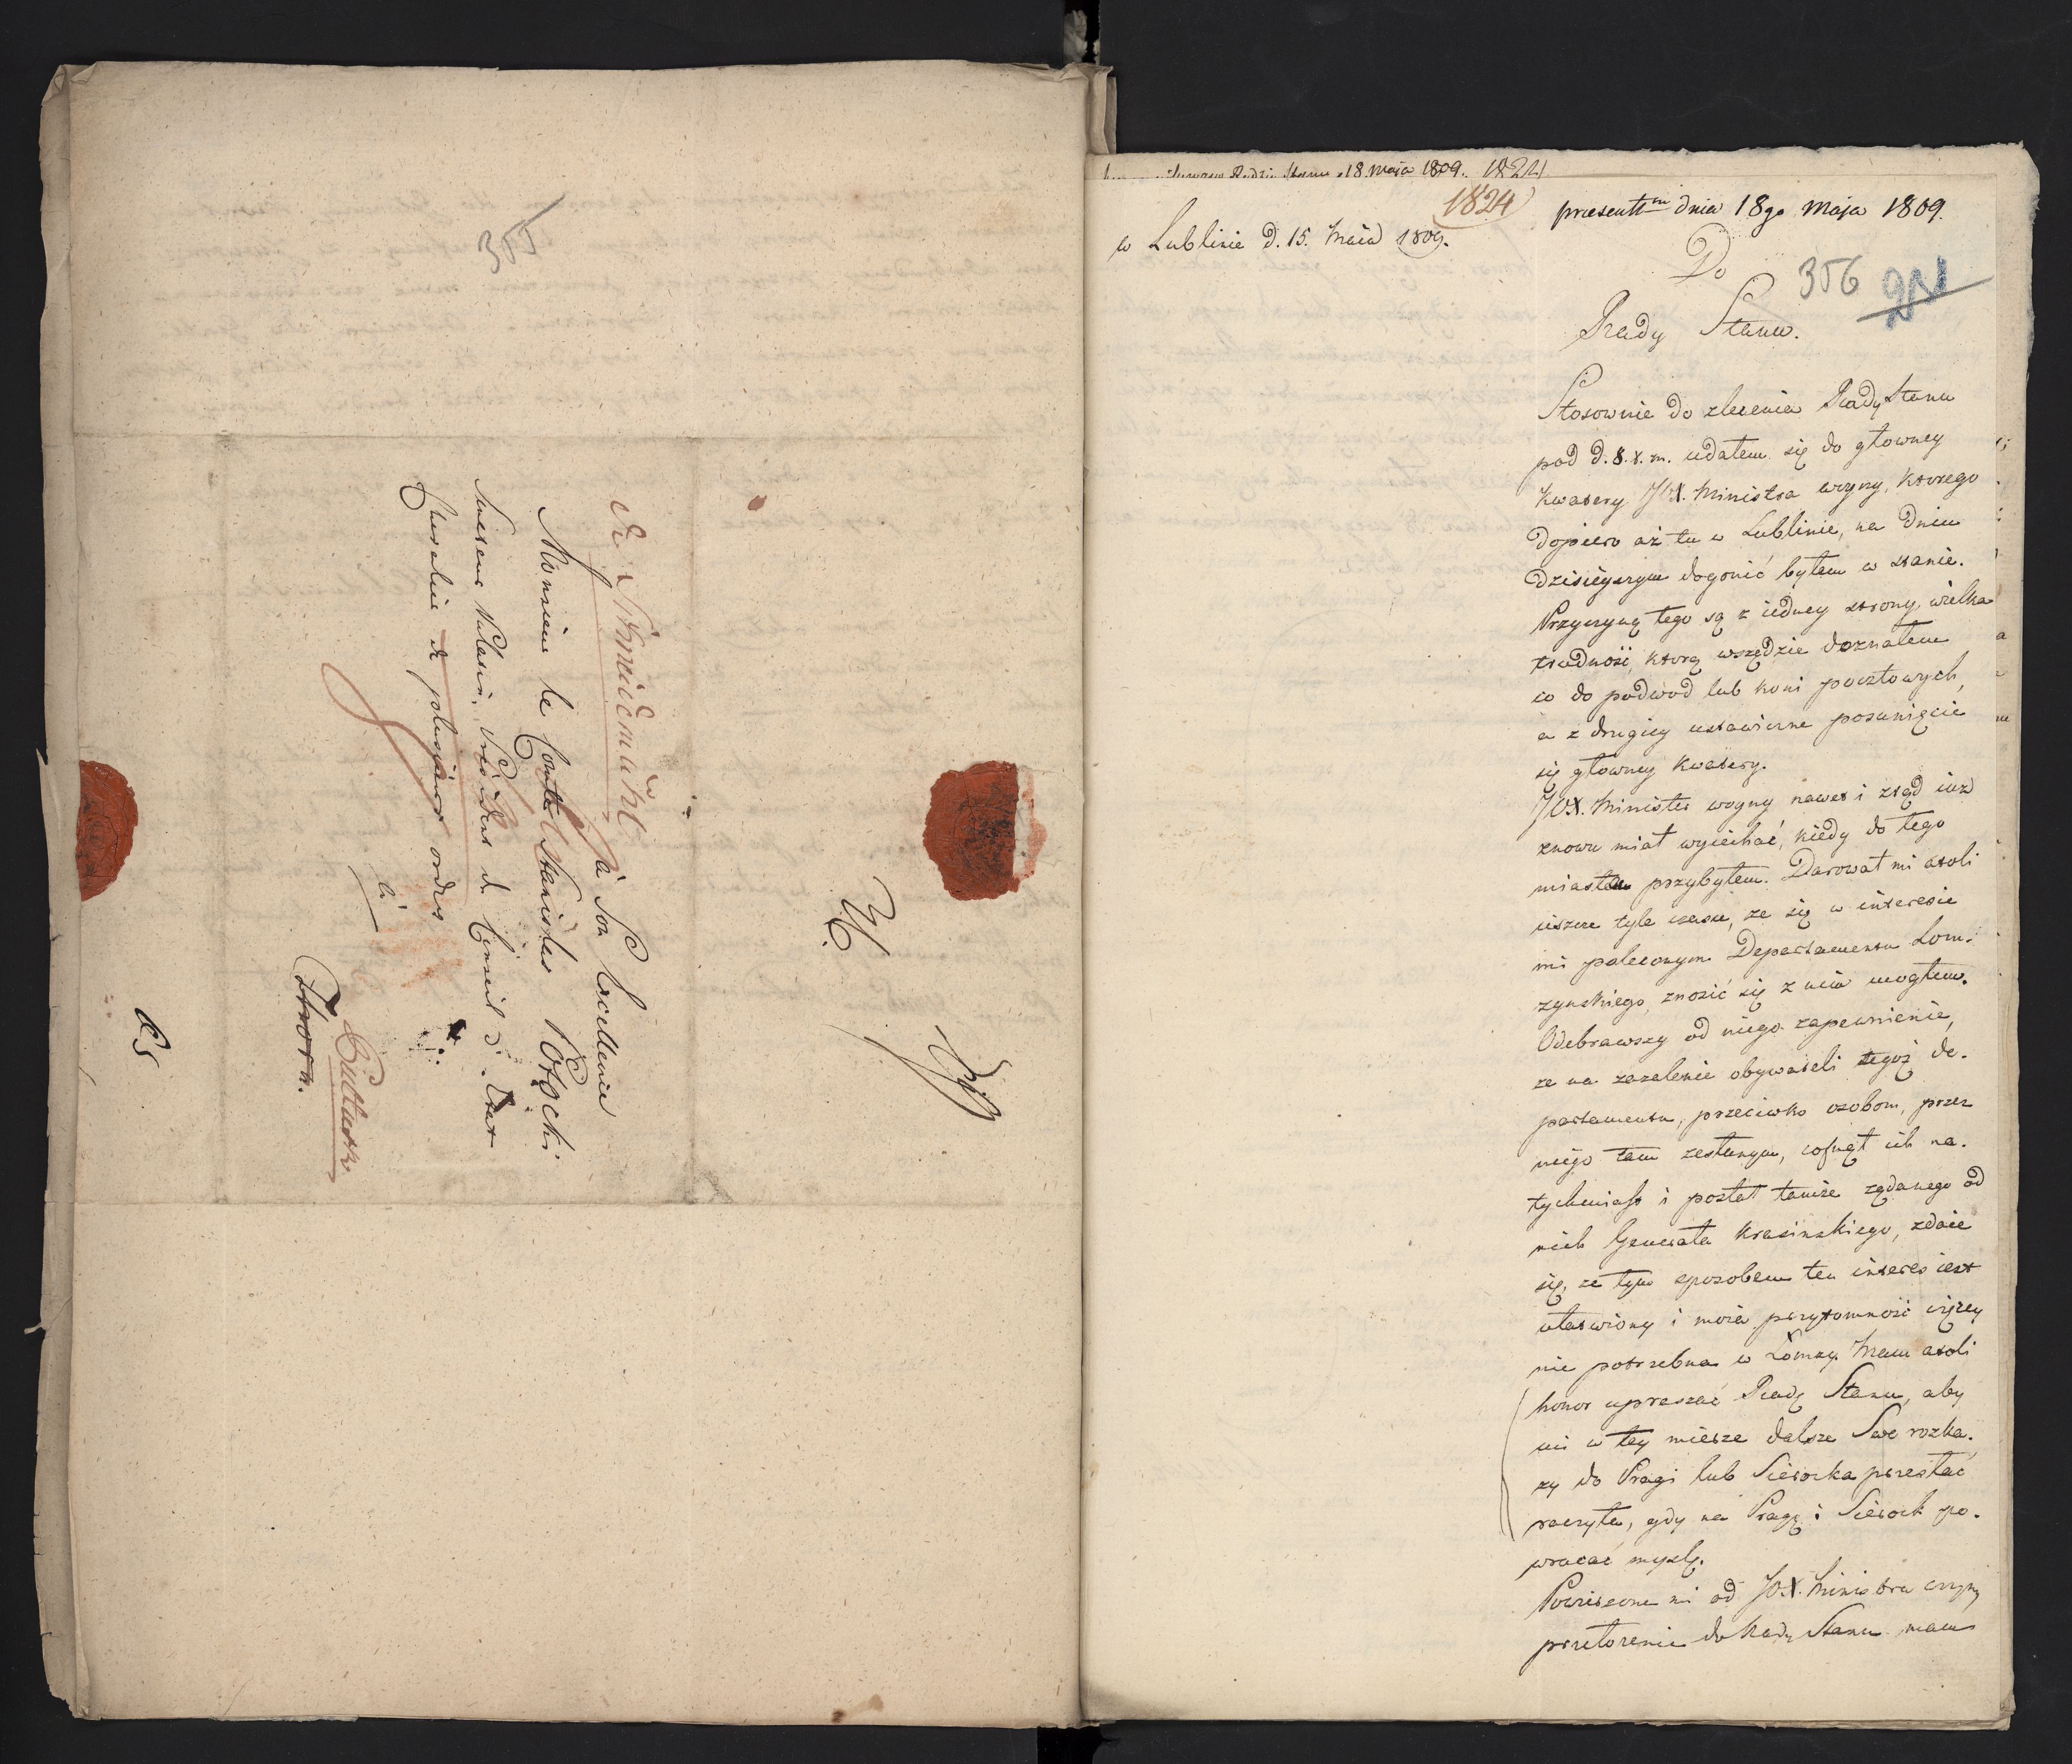 355
de Schneidemühl
à Son Excellence
Monsieur le Comte Stanislas Potocki.
Senateur Palatin, President du Conseil d'Etat
Chevalier de plusieurs ordres
à
Thorn.
Pultusk
85
18. Maja 1809. 1824
1824
praesentt dnia 18go Maja 1809.
w Lublinie d. 15. Maia 1809.
Do
356
Rady Stanu.
Stosownie do zlecenia Rady Stanu
pod d. 8. t. m. udałem się do głowney
kwatery JOX. Ministra woyny, ktorego
dopiero aż tu w Lublinie, na dniu
dzisieyszym dogonić byłem w stanie.
Przyczyną tego są z iedney strony, wielka
trudność, ktorą wszędzie doznałem
co do podwod lub koni pocztowych,
a z drugiey ustawiczne posunięcie
się głowney kwatery.
JOX. Minister woyny nawet i ztąd iuż
znowu miał wyiechać, kiedy do tego
miasta przybyłem. Darował mi atoli
ieszcze tyle czasu, że się w interesie
mi poleconym Departamentu Łom-
zynskiego, znosić się z nim mogłem.
Odebrawszy od niego zapewnienie,
ze na zazalenie obywateli tegoż de-
partamentu, przeciwko osobom, przez
niego tam zesłanym, cofnął ich na-
tychmiast i posłał tamże żądanego od
nich Generała Krasinskiego, zdaie
się, ze tym sposobem ten interes iest
ułatwiony i moia przytomność więcey
nie potrzebna w Łomzy. Mam atoli
honor upraszać Rady Stanu, aby
mi w tey mierze dalsze Swe rozka-
zy do Pragi lub Sierocka przesłać
raczyła, gdy na Pragę i Sierock po-
wracać myślę.
Powierzone mi od JOX. Ministra woyny
przełozenie do Rady Stanu mam